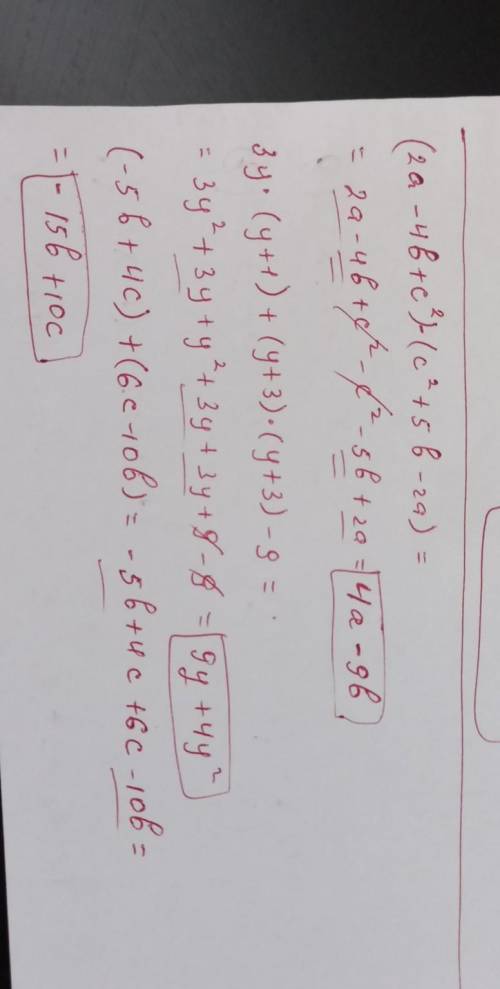 (2a - 4b + c²) - (c² + 5b - 2a) =
= 2a - 4b + c² - c² - 5b + 2a = 4a - 9b
3y · (y + 1) + (y + 3) · (y + 3) - 9 =
= 3y² + 3y + y² + 3y + 3y + 9 - 9 = 9y + 4y²
(-5b + 4c) + (6c - 10b) = -5b + 4c + 6c - 10b =
= -15b + 10c